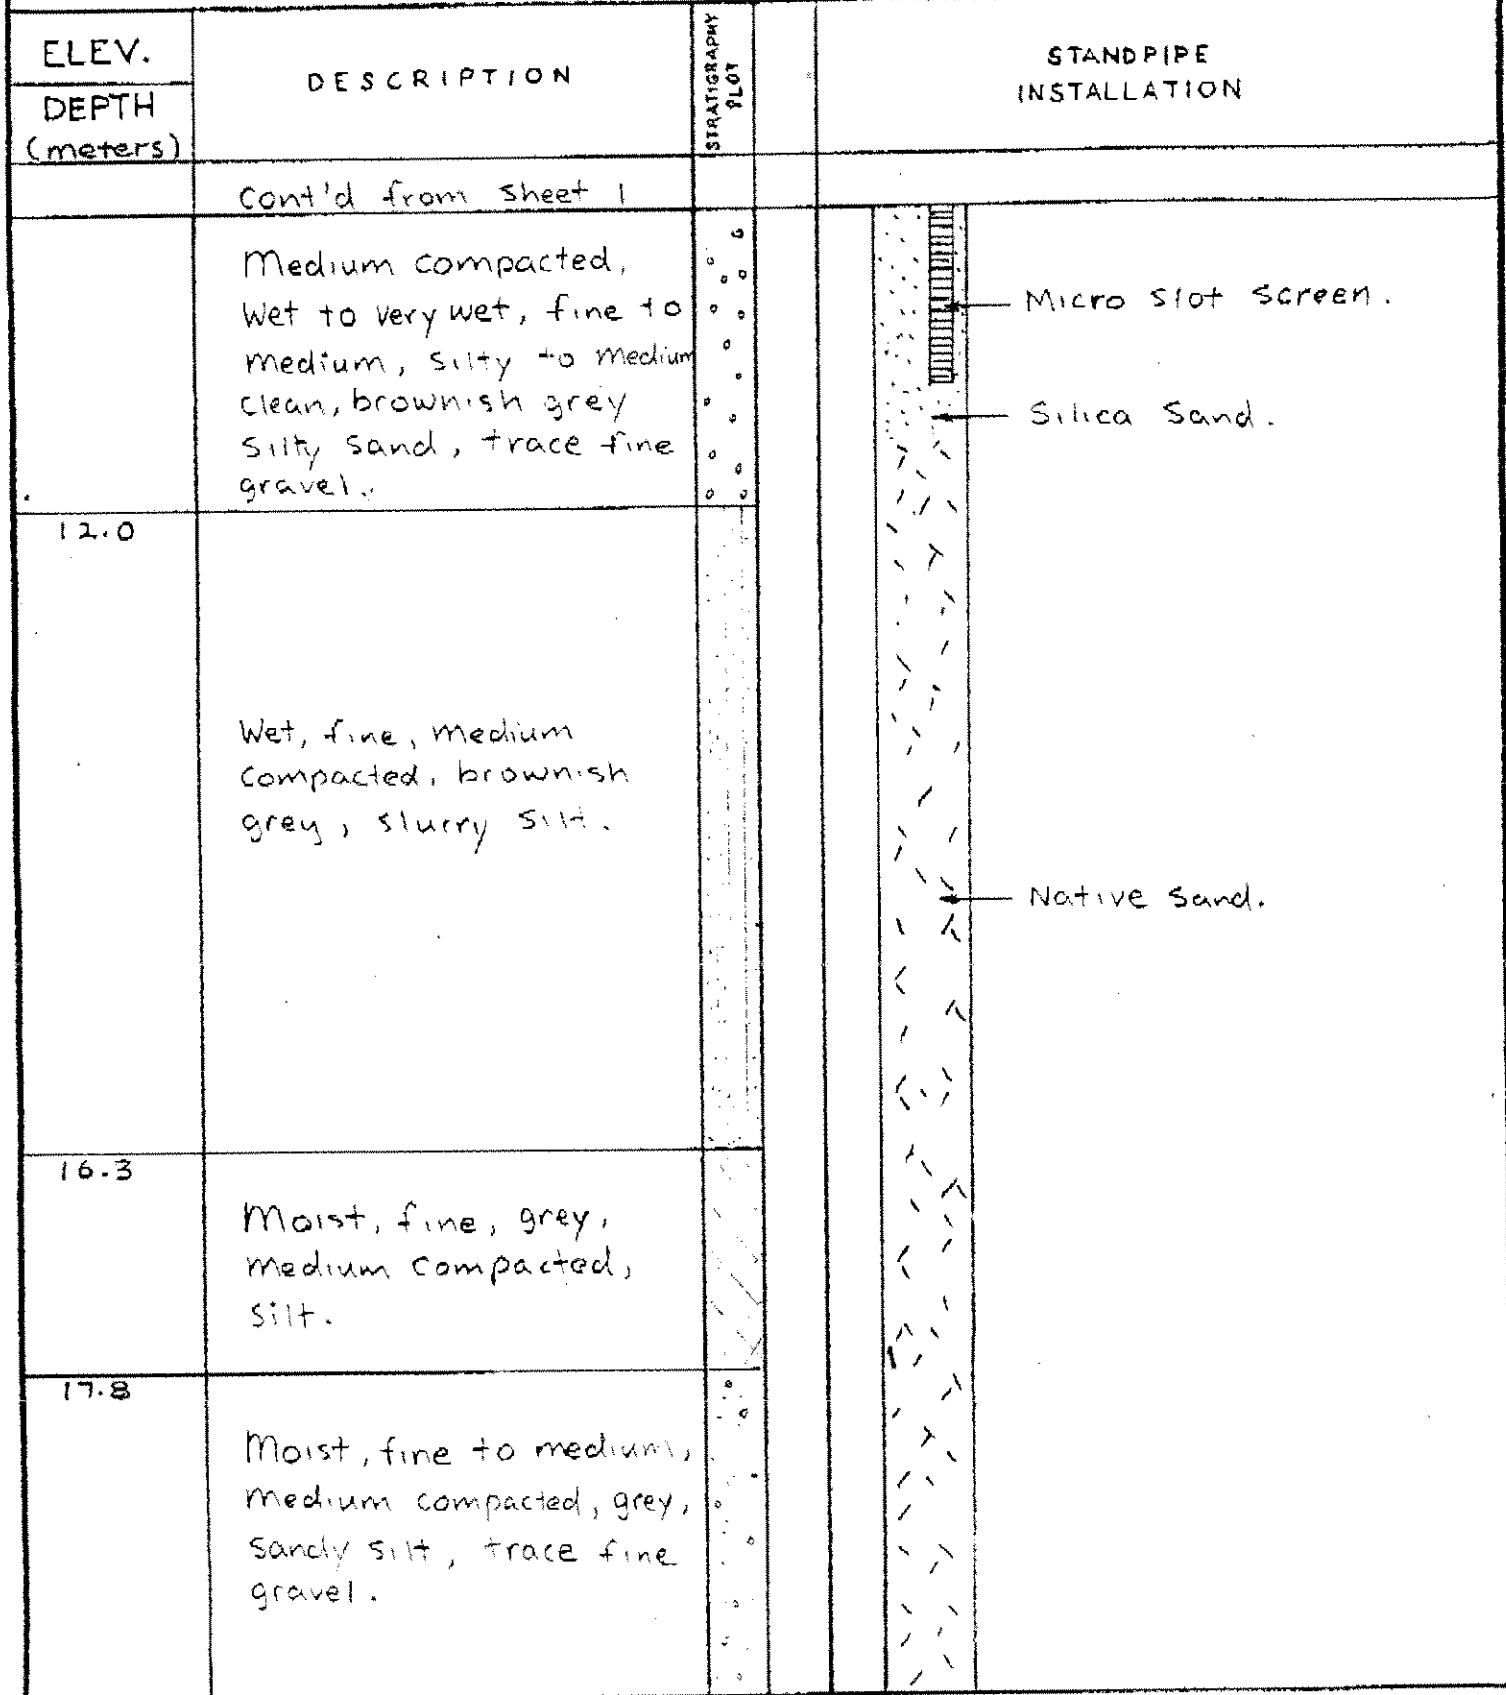 ELEV.
DEPTH
(meters)
DESCRIPTION
STRATIGRAPHY
PLOT
STANDPIPE
INSTALLATION
Cont'd from Sheet 1
Medium compacted,
Wet to very wet, fine to
medium, silty to medium
clean, brownish grey
silty sand, trace fine
gravel.
Micro slot screen.
Silica Sand.
12.0
Wet, fine, medium
compacted, brownish
grey, slurry silt.
Native sand.
16.3
Moist, fine, grey,
medium compacted,
silt.
17.8
Moist, fine to medium,
medium compacted, grey,
sandy silt, trace fine
gravel.